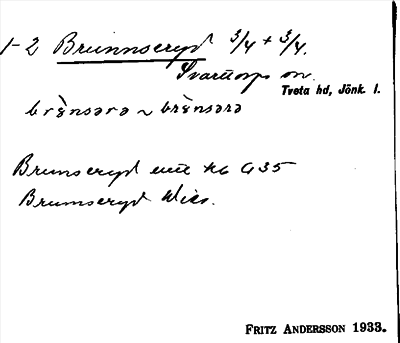 1-2 Brunnseryd 3/4 + 3/4.
Svarttorps sn.
Tveta hd, Jönk. l.
brɵ̀nsərə ~ brɵ̀nsərə
Brunseryd enl kb G35
Brumseryd
FRITZ ANDERSSON 1933.